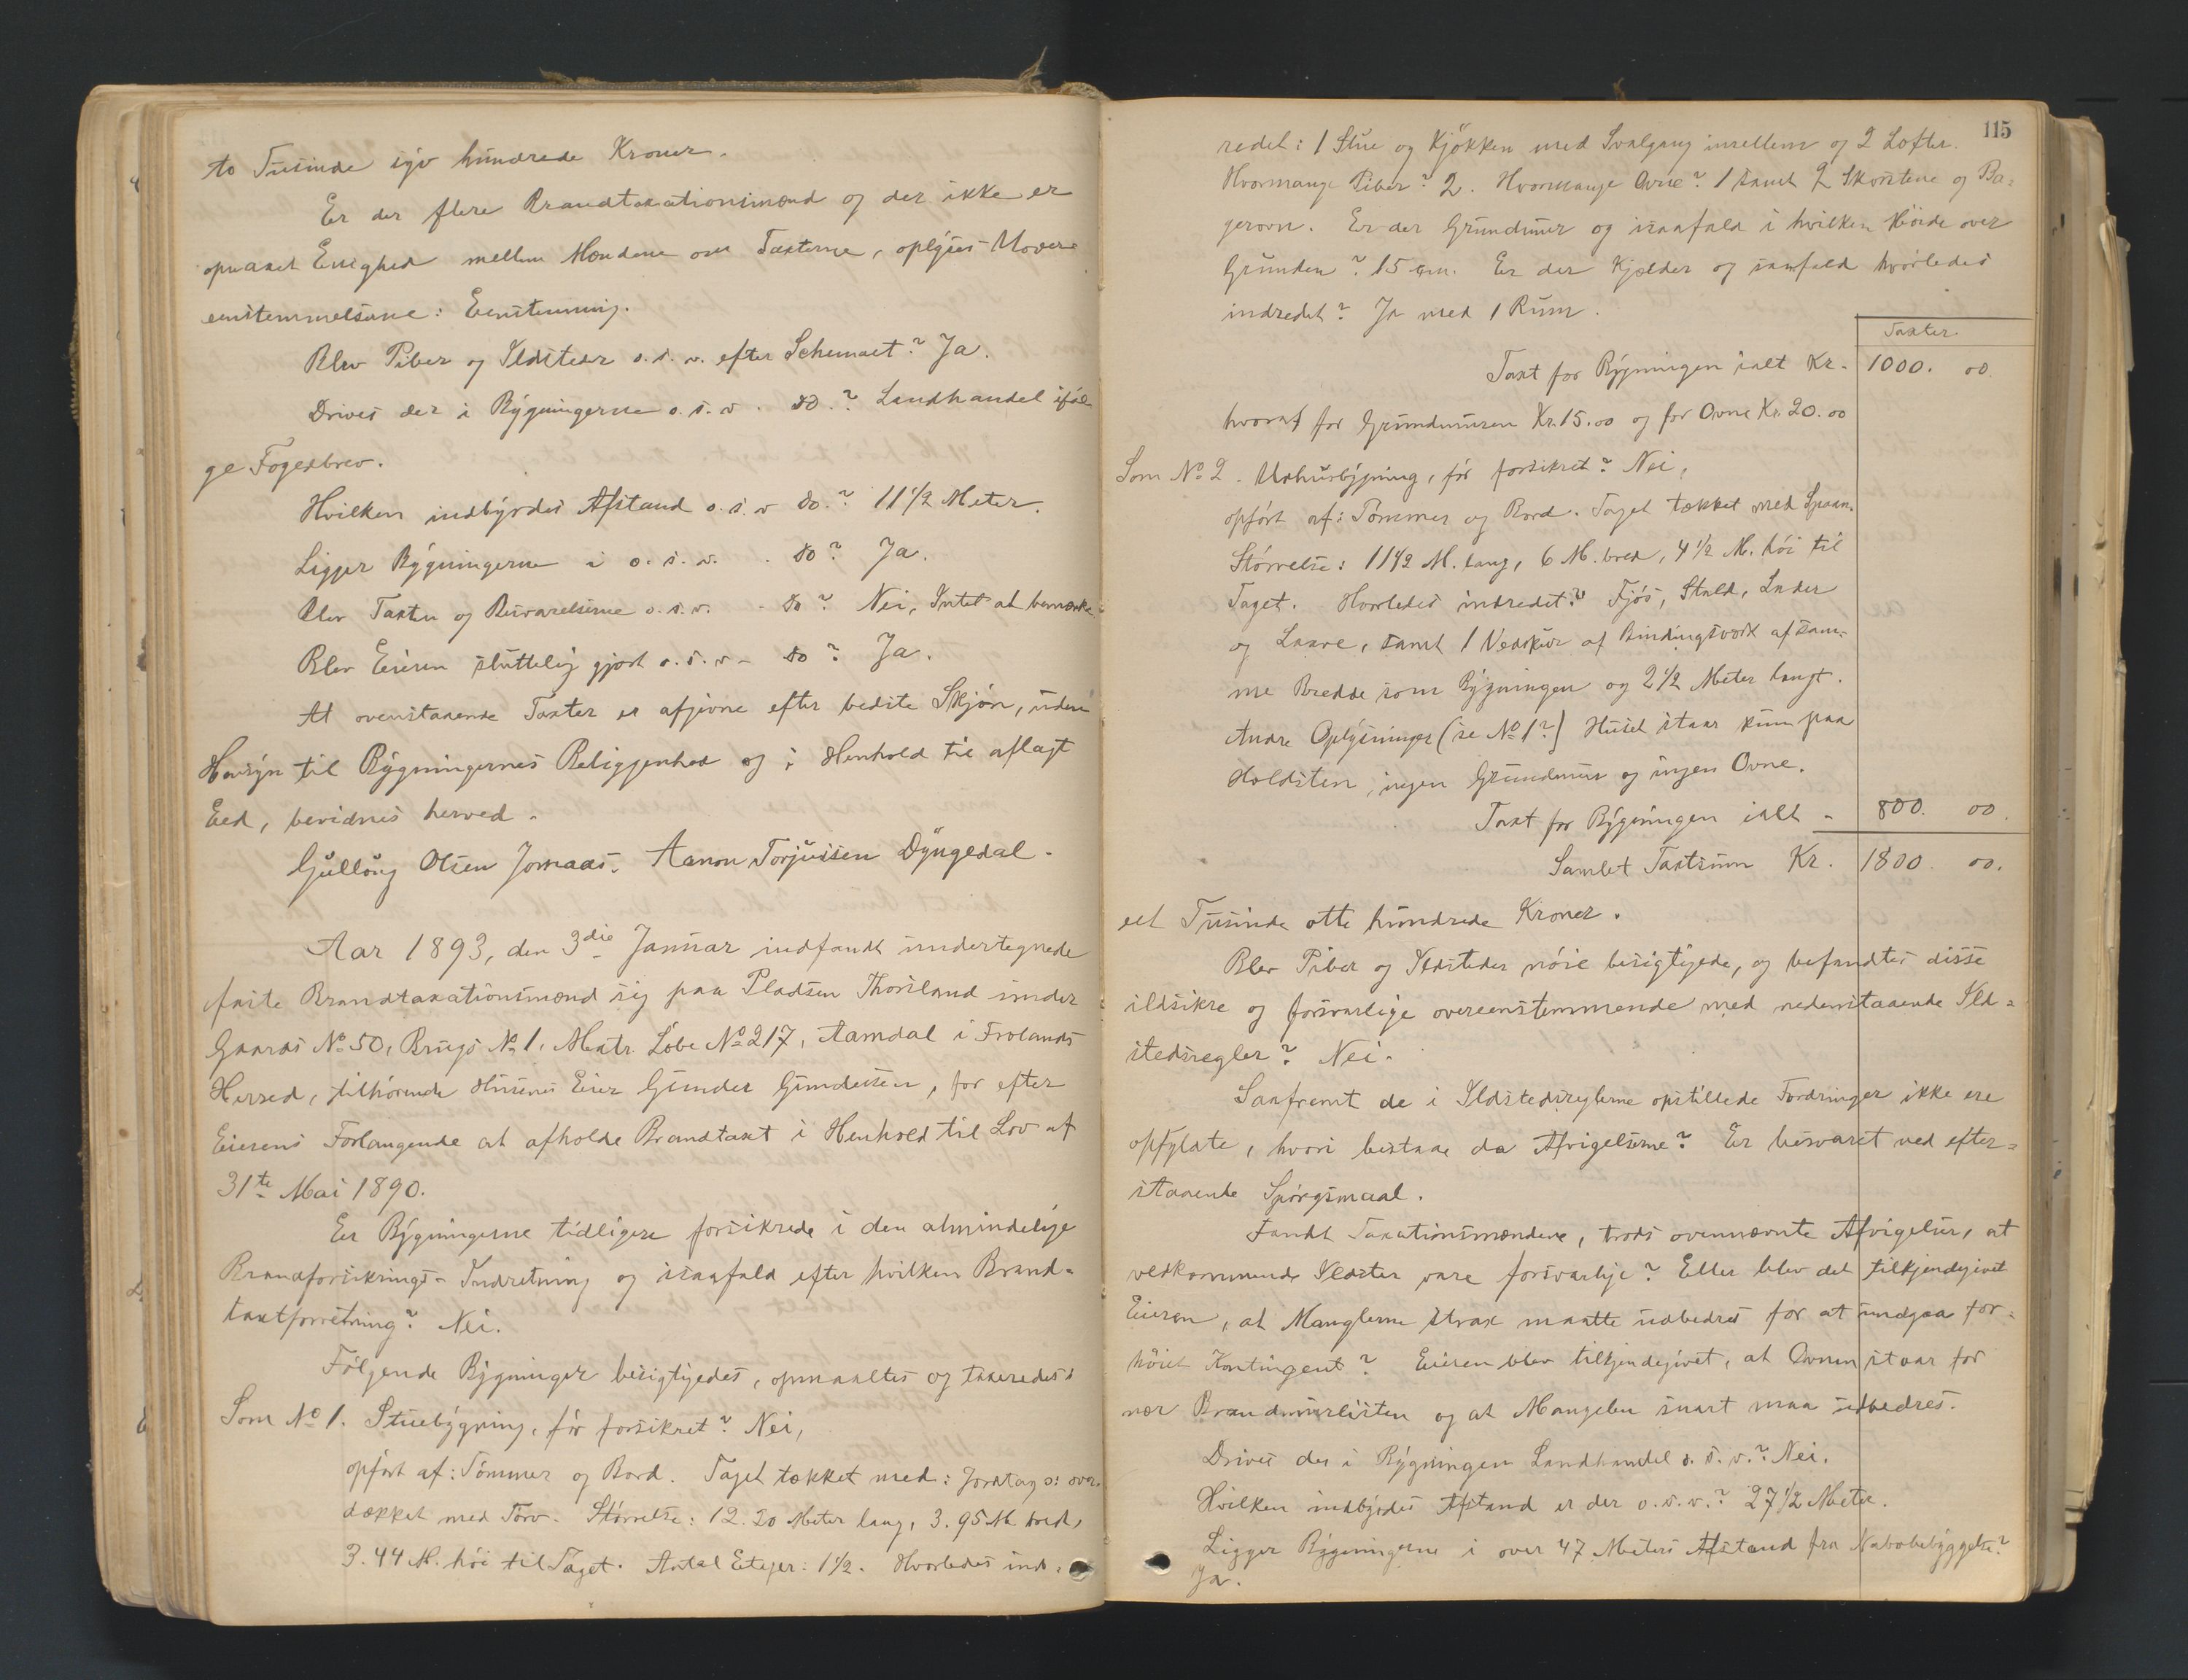 to Tusinde syv hundrede Kroner.
Er der flere Brandtaxationsmænd og der ikke er
opnaaet Enighed mellem Mændene om Taxterne, oplyses Uover-
eenstemmelserne: Eenstemmig.
Blev Piber og Ildsteder o.s.v. efter Schemaet? Ja.
Drives der i Bygningerne o.s.v. do.? Landhandel iføl-
ge Fogedbrev.
Hvilken indbyrdes Afstand o.s.v do.? 11 1/2 Meter.
Ligger Bygningerne i o.s.v. do? Ja.
Blev Taxten og Besvarelserne o.s.v. do? Nei, Intet at bemærke.
Blev Eieren sluttelig gjort o.s.v. do? Ja.
At ovenstaaende Taxter er afgivne efter bedste Skjøn, uden
Hensyn til Bygningernes Beliggenhed og i Henhold til aflagt
Eed, bevidnes herved.
Gullov Olsen Jomaas. Aanon Torjussen Dyngedal.
Aar 1893, den 3die Januar indfandt undertegnede
faste Brandtaxationsmænd sig paa Pladsen Thorsland under
Gaards No 50, Brugs No 1, Matr. Løbe No 217, Aamdal i Frolands
Herred, tilhørende Husenes Eier Gunder Gundersen, for efter
Eierens Forlangende at afholde Brandtaxt i Henhold til Lov af
31te Mai 1890.
Er Bygningerne tidligere forsikrede i den almindelige
Brandforsikrings-Indretning og isaafald efter hvilken Brand-
taxtforretning? Nei.
Følgende Bygninger besigtigedes, opmaaltes og taxeredes:
Som No 1. Stuebygning, før forsikret? Nei,
opført af: Tømmer og Bord. Taget tækket med: Jordtag o: over-
dækket med Torv. Størrelse: 12.20 Meter lang, 3.95 M. bred,
3.44 M. høi til Taget. Antal Etager: 1 1/2. Hvorledes ind-
115
redet: 1 Stue og Kjøkken med Svalgang imellem og 2 Lofter.
Hvormange Piber? 2. Hvormange Ovne? 1 samt 2 Skorstene og Ba-
gerovn. Er der Grundmur og isaafald i hvilken Høide over
Grunden? 15 cm. Er der Kjælder og isaafald hvorledes
indredet? Ja med 1 Rum.
Taxter
Taxt for Bygningen ialt Kr. 1000. 00.
hvoraf for Grundmuren Kr. 15.00 og for Ovne Kr. 20.00
Som No 2. Udhusbygning, før forsikret? Nei,
opført af: Tømmer og Bord. Taget tækket med Spaan.
Størrelse: 11 1/2 M. lang, 6 M. bred, 4 1/2 M. høi til
Taget. Hvorledes indredet? Fjøs, Stald, Lader
og Laave, samt 1 Vedskur af Bindingsværk af sam-
me Bredde som Bygningen og 2 1/2 Meter langt.
Andre Oplysninger (se No 1?) Huset staar kun paa
Holdsten, ingen Grundmur og ingen Ovne.
Taxt for Bygningen ialt - 800. 00.
Samlet Taxtsum Kr. 1800 00.
eet Tusinde otte hundrede Kroner.
Blev Piber og Ildsteder nøie besigtigede, og befandtes disse
ildsikre og forsvarlige overeenstemmende med nedenstaaende Ild-
stedsregler? Nei.
Saafremt de i Ildstedsreglerne opstillede Fordringer ikke ere
opfyldte, hvori bestaae da Afvigelserne? Er besvaret ved efter-
staaende Spørgsmaal.
Fandt Taxationsmændene, trods ovennævnte Afvigelser, at
vedkommende Ildsteder vare forsvarlige? Eller blev det tilkjendegivet
Eieren, at Manglerne strax maatte udbedres for at undgaa for-
høiet Kontingent? Eieren blev tilkjendegivet, at Ovnen staar for
nær Brandmurlisten og at Mangelen snart maa udbedres.
Drives der i Bygningen Landhandel o.s.v.? Nei.
Hvilken indbyrdes Afstand er der o.s.v.? 27 1/2 Meter.
Ligger Bygningerne i over 47 Meters Afstand fra Nabobebyggelse?
Ja.